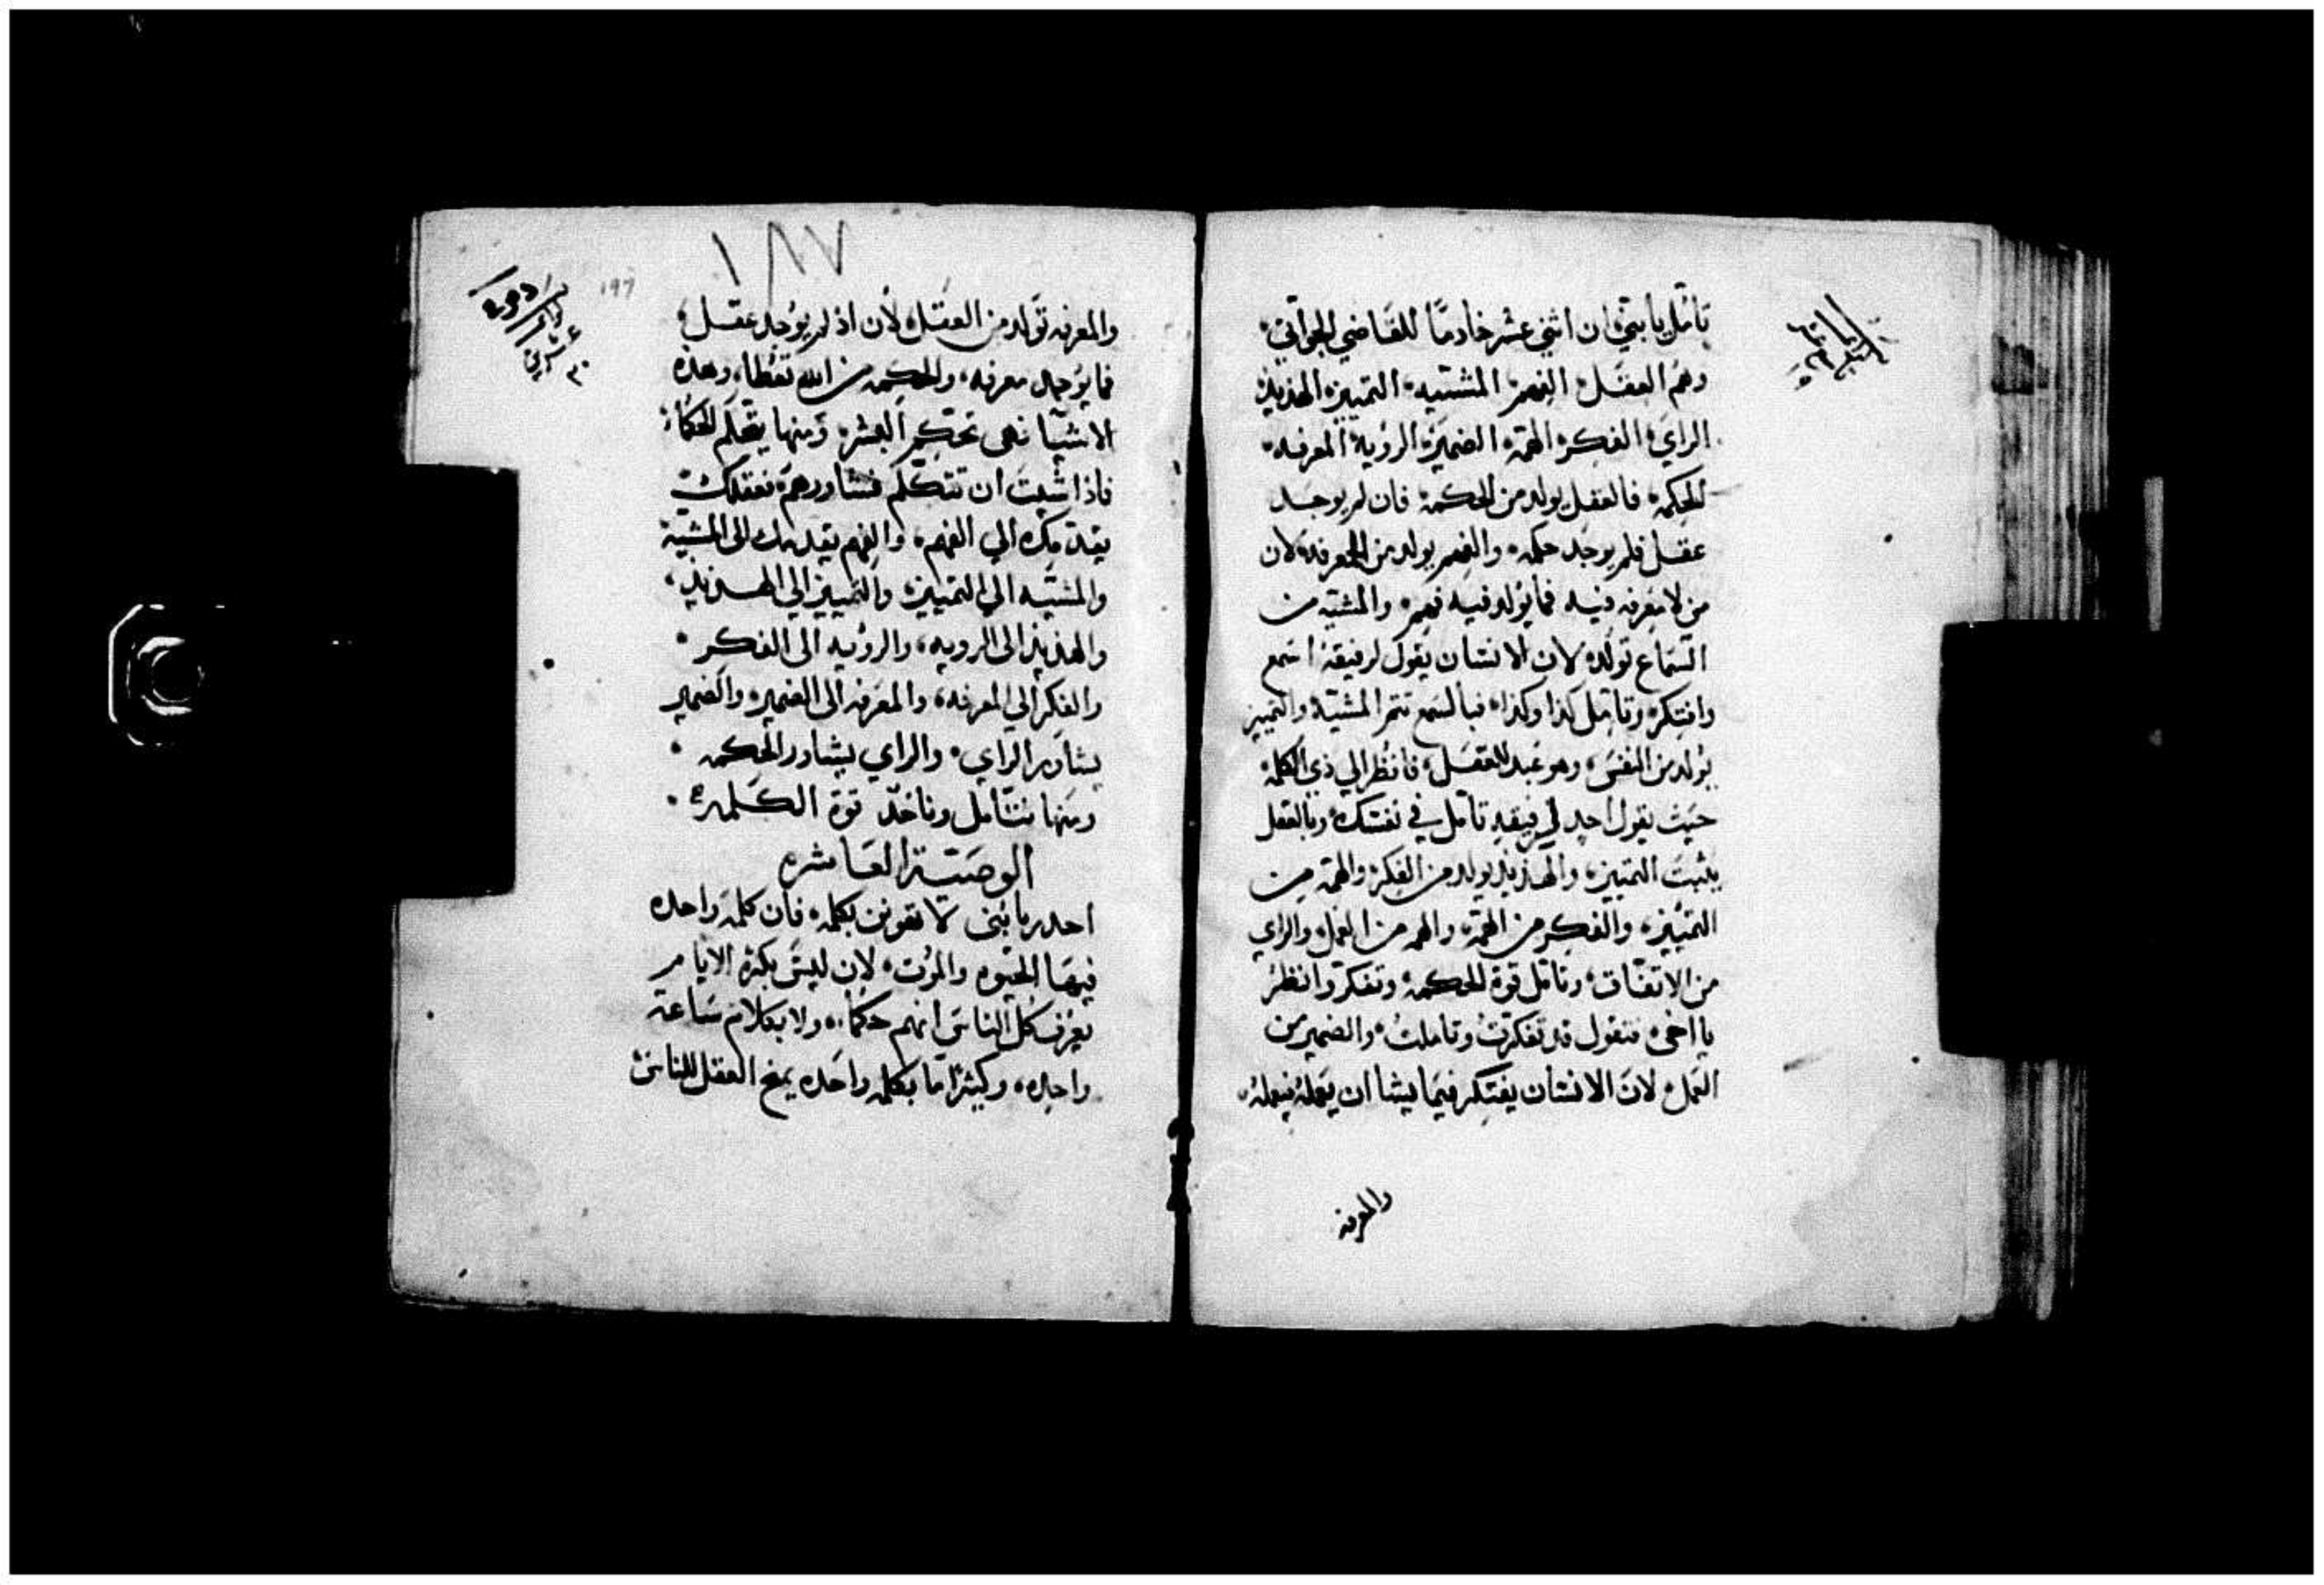 تامل يا بني ان اثني عشر خادمًا للقاضي الجواني
وهم العقل الفهم المشتيه التمييز الهذيذ
الراي الفكر الهمة الضمير الروية المعرفه
الحكمة فالعقل يولد من الحكمة فان لم يوجد
عقل فلم يوجد حكمه والفهم يولد من المعرفة لان
من لا معرفه فيه فما يولد فيه فهم والمشيّه من
السماع تولده لان الانسان يقول لرفيقه اسمع
وافتكر وتامل كذا وكذا فبالسمع تتم المشيّة والتمييز
يولد من النفس وهو عبد للعقل فانظر الي ذي الكلمة
حيث يقول احد لرفيقه تامل في نفسك وبالعقل
يثبت التمييز والهذيذ يولد من الفكر والهمّه من
التمييز والفكر من الهمّة والهمه من العمل والراي
من الاتفاق وتامل قوة الحكمة وتفكر وانظر
يا اخي فتقول قد تفكرت وتاملت والضمير من
العمل لان الانسان يفتكر فيما يشا ان يعمله فيعمله
والمعرفه
١٨٧
197
والمعرفه تولد من العقل لان اذ لم يوجد عقل
فما يوجد معرفه والحكمه من الله تعطا وهذه
الاشيا فهى تحكم البشر ومنها يتعلم الحكماء
فاذا شيت ان تتكلم فشاورهم فعقلك
يقدمك الي الفهم والفهم يقدمك الى المشية
والمشيّه الي التمييز والتمييز الي الهذيذ
والهذيذ الى الرويه والرؤيه الى الفكر
والفكر الي المعرفة والمعرفه الى الضمير والضمير
يشاور الراي والراي يشاور الحكمه
ومنها نتامل وناخذ قوة الكلمه
الوصية العاشره
احدر يا بنى لا تهونن بكلمه فان كلمة واحده
فيها الحيوه والموت لان ليس بكثرة الايام
يعرف كل الناس انهم حكماء ولا بكلام ساعة
واحده وكثيرًا ما بكلمه واحده يمنح العقل للناس